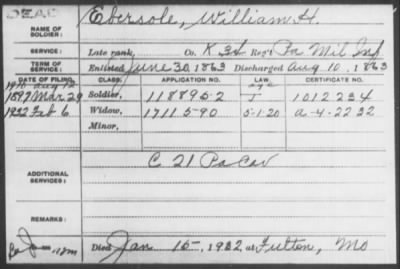 NAME OF SOLDIER: Ebersole, William H.
SERVICE: Late rank, Co. K 34 Reg't Pa Mil Inf
TERM OF SERVICE: Enlisted June 30, 1863 Discharged Aug 10, 1863
DATE OF FILING. CLASS. APPLICATION NO. LAW. CERTIFICATE NO.
1910 Aug 12
1897 Mar 29 Soldier, 1188952 J 1012234
1932 Feb 6 Widow, 1711590 5-1-20 a-4-22-32
Minor,
C 21 Pa Cav
ADDITIONAL SERVICES:
REMARKS:
Died Jan 15, 1932 at Fulton, Mo